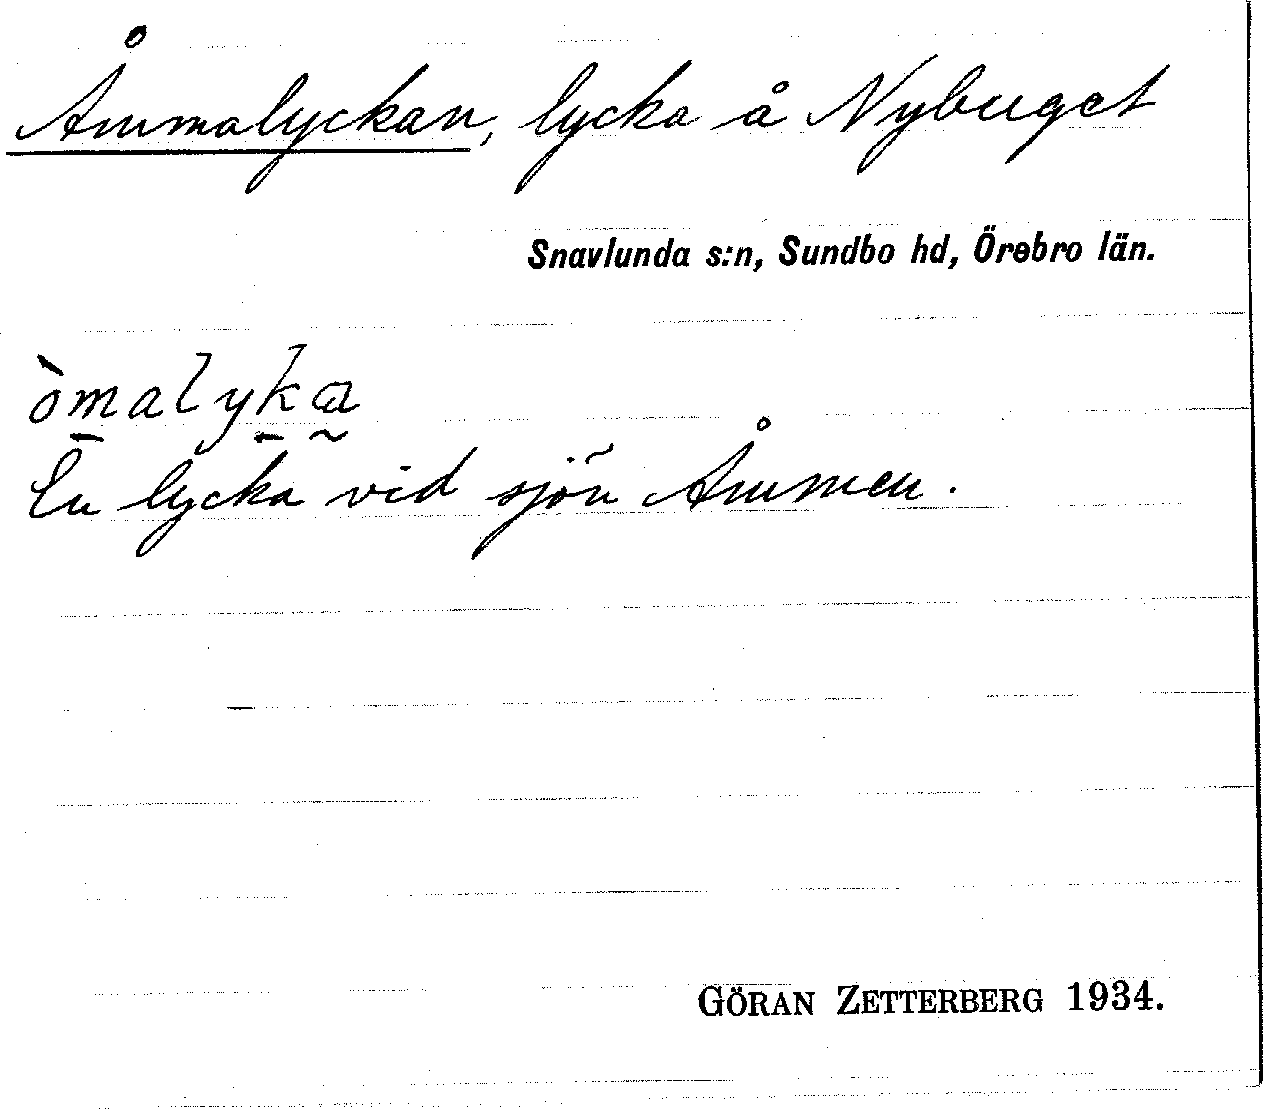 Åmmalyckan, lycka å Nybuget
Snavlunda s:n, Sundbo hd, Örebro län.
òmalyka
En lycka vid sjön Åmmen.
GÖRAN ZETTERBERG 1934.